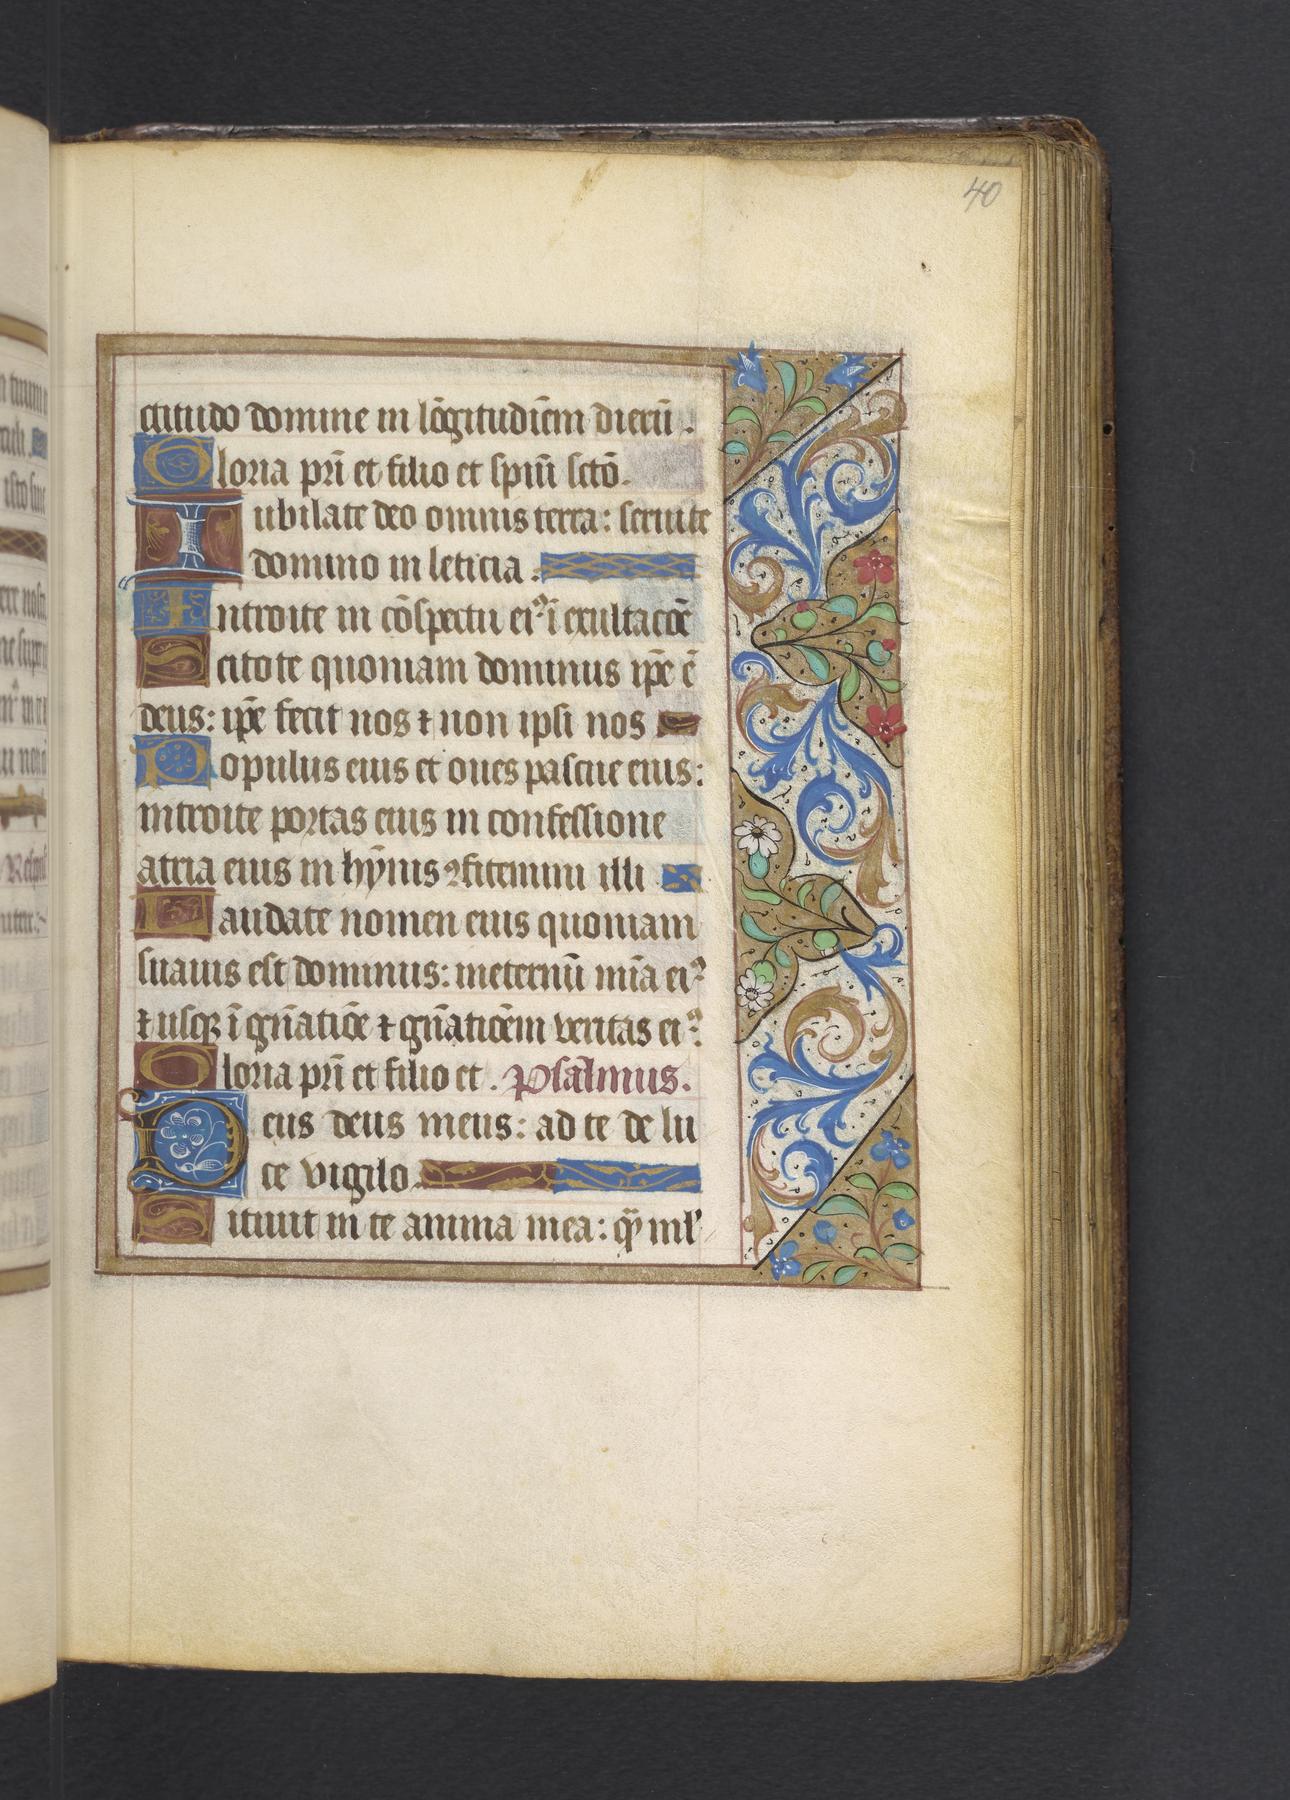 40
ctitudo domine in lōgitudiēm dierū.
Gloria pr̄i et filio et spiū sctō.
Iubilate deo omnis terra: seruite
domino in leticia.
Introite in cōspectu ei⁹ ī exultacōe
Scitote quoniam dominus ip̄e ē
deus: ip̄e fecit nos ⁊ non ipsi nos
Populus eius et oues pascue eius:
introite portas eius in confessione
atria eius in hȳnis ꝯfitemini illi
Laudate nomen eius quoniam
suauis est dominus: ineternū mīa ei⁹
⁊ usqꝫ ī gn̄atiōe ⁊ gn̄atiōem veritas ei⁹:
Gloria pr̄i et filio et. Psalmus.
Deus deus meus: ad te de lu
ce vigilo.
Sitiuit in te anima mea: qͫ ml̓